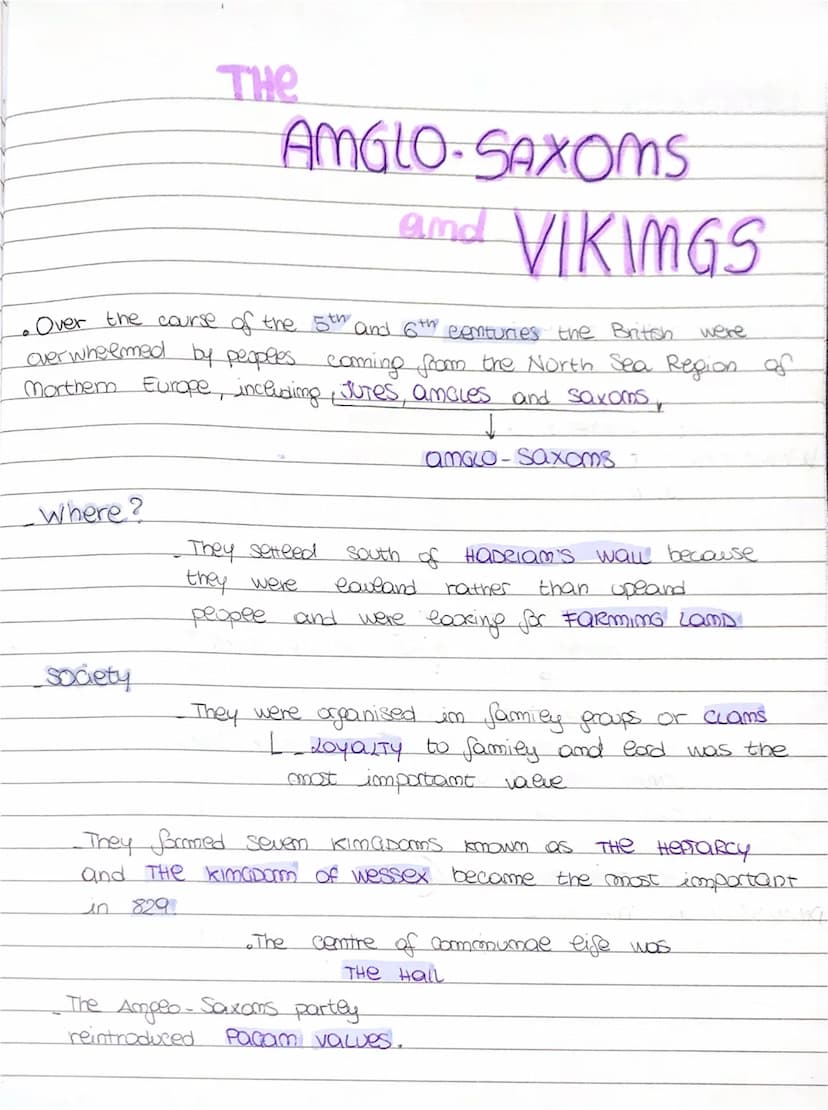 THe
ANGLO-SAXONS
and VIKINGS
.Over the course of the 5th and 6th centuries the British were
overwhelmed by peoples coming from the North Sea Region of
Northern Europe, including, JUTES, ANGLES and SAXONS,
↓
ANGLO-SAXONS
_Where?
_They settled south of HADRIAN'S WALL because
they were lowland rather than upland
people and were looking for FARMING LAND
_SOCIETY
_They were organised in family groups or CLANS
L_LOYALTY to family and lord was the
most important value
_They formed seven KINGDOMS KNOWN as THE HEPTARCY
and THE KINGDOM OF WESSEX became the most important
in 829
.The centre of communal life was
THE HALL
_The Anglo-Saxons partly
reintroduced PAGAN VALUES.